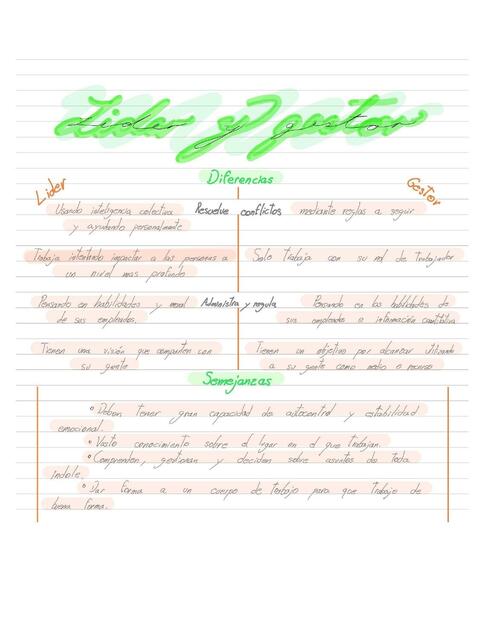 Lider y gestor
Diferencias
Lider
Gestor
Usando inteligencia colectiva Resuelve conflictos mediante reglas a seguir
y ayudando personalmente
Trabaja intentando impactar a las personas a Solo trabaja con su rol de trabajador
un nivel mas profundo
Pensando en habilidades y moral Administra y regula Pensando en las habilidades de
de sus empleados. sus empleados e información cuantitativa
Tienen una visión que comparten con Tienen un objetivo por alcanzar utilizando
su gente a su gente como medio o recurso
Semejanzas
° Deben tener gran capacidad de autocontrol y estabilidad
emocional.
° Vasto conocimiento sobre el lugar en el que trabajan.
° Comprenden, gestionan y deciden sobre asuntos de toda
índole.
° Dar forma a un cuerpo de trabajo para que trabaje de
buena forma.